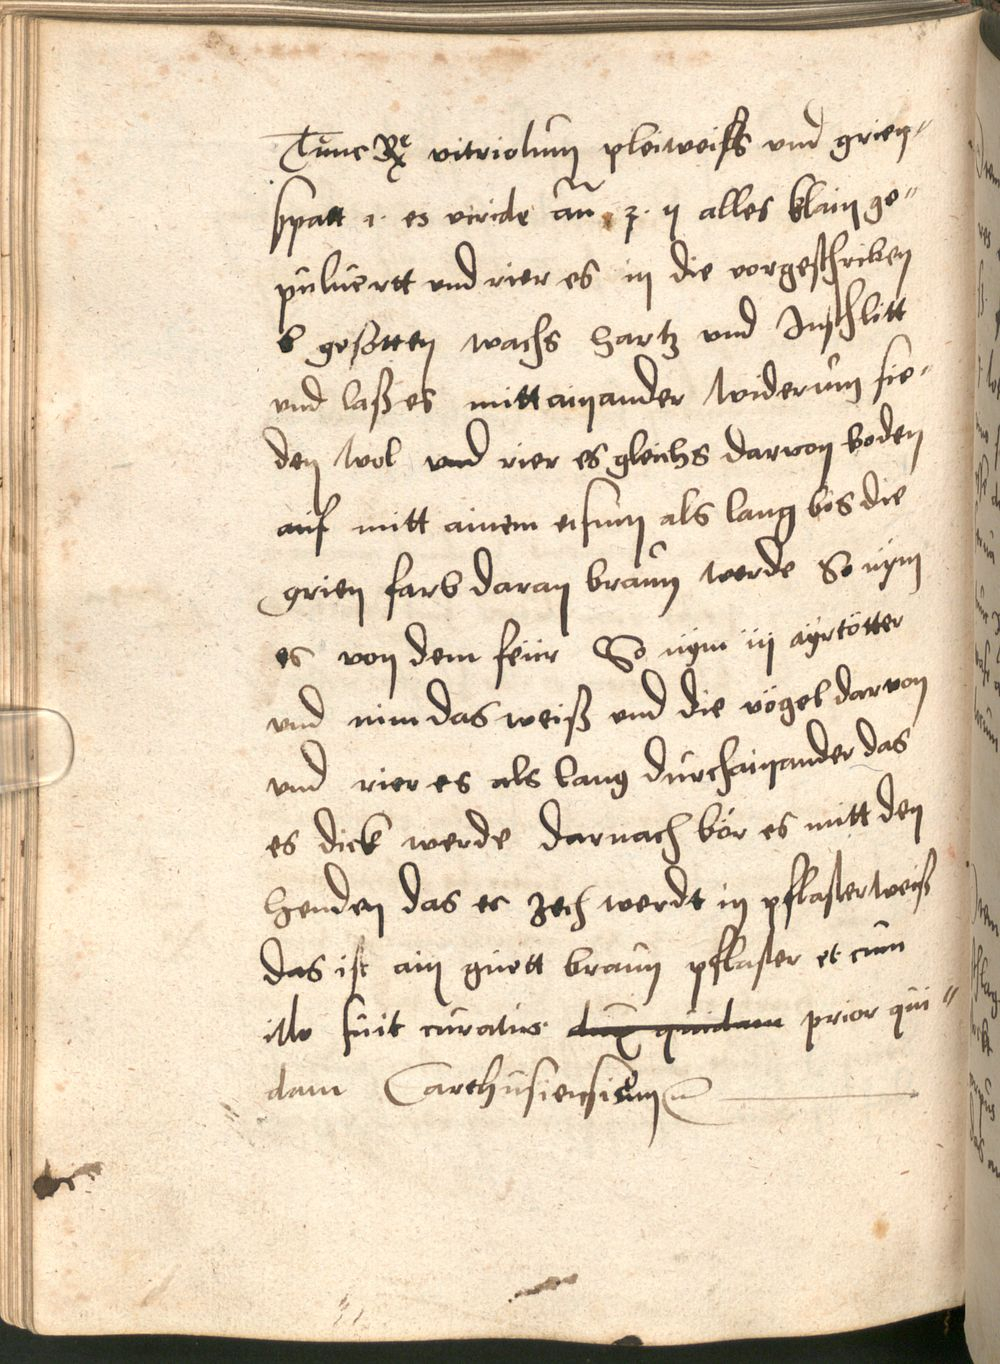 Tunc Re vitriolum pleiweiss vnd grien=
spatt .i. es viride añ ʒ. ij alles klain ge=
puluertt vnd rier es in die vorgeschriben
gesotten wachs hartz vnd Inschlitt
vnd laß es mitt ainander widerum sie=
den wol vnd rier es gleichs darvon boden
auf mitt ainem eisinn als lang bis die
grien farb daran braun werde So nym
es von dem feur So nym iij ayrtötter
vnd nim das weiß vnd die vögel darvon
vnd rier es als lang durchainander das
es dick werde darnach bör es mitt den
henden das es zech werdt in pflasterweiß
das ist ain guett braun pflaster et cum
illo fuit curatus dux quidam prior qui=
dam Carthusiensium